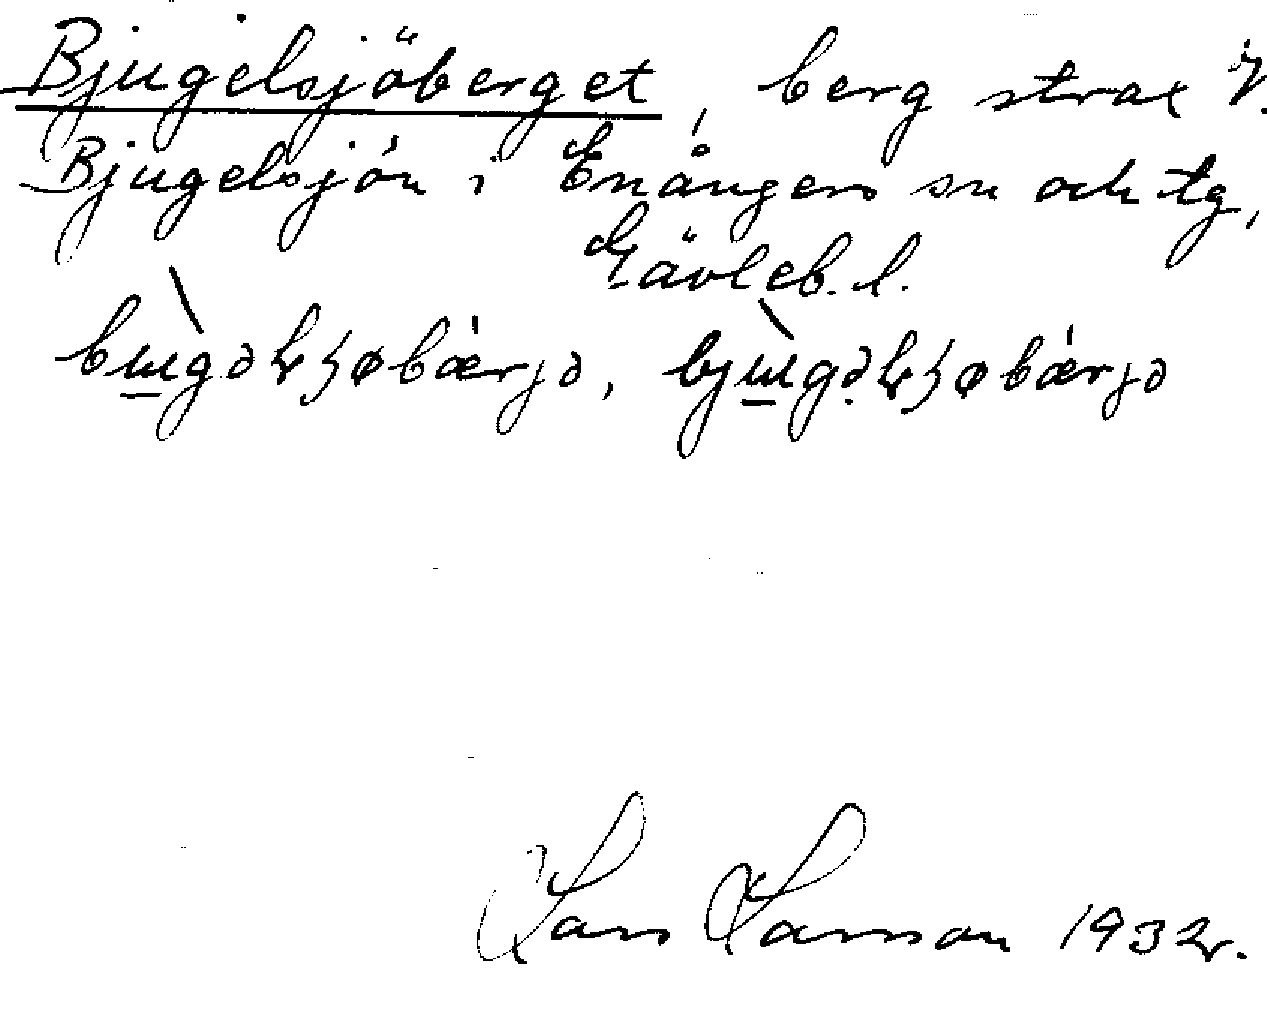 Bjugelsjöberget, berg strax V.
Bjugelsjön i Enångers sn och tg,
Gävleb. l.
Lars Larsson 1932.